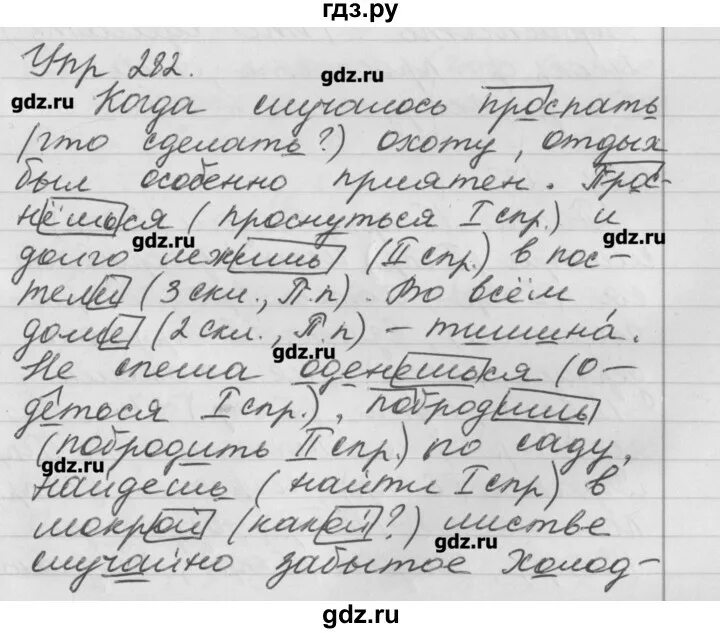 гдз.ру
Упр 282.
gdz.ru
gdz.ru
Когда случалось проспать
(что сделать?) охоту, отдых
был особенно приятен. Прос-
нёшься (проснуться I спр.) и
gdz.ru
gdz.ru
долго лежишь (II спр.) в пос-
тели (3 скл., П.п). Во всём
доме (2 скл., П.п) – тишина́.
gdz.ru
Не спеша оденешься (о-
деться I спр.), побродишь
(побродить II спр.) по саду,
gdz.ru
найдешь (найти I спр) в
мокрой (какой?) листве
gdz.ru
случайно забытое холод-
gdz.ru